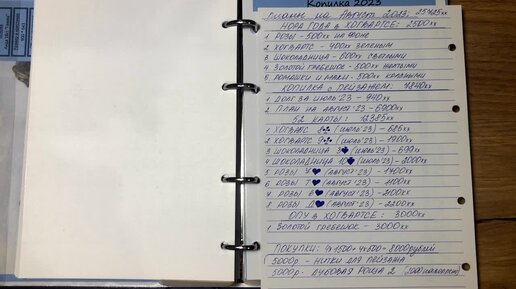 Копилка 2023
Планы на Август 2023:
НОРА ГОДА в ХОГВАРТСЕ: 2500хх
1. РОЗЫ - 500хх на фоне
2. ХОГВАРТС - 400хх зеленым
3. ШОКОЛАДНИЦА - 600хх светлыми
4. ЗОЛОТОЙ ГРЕБЕШОК - 500хх желтыми
5. РОМАШКИ И МАКИ - 500хх красными
КОПИЛКА с ПЕЙЗАЖЕМ: 7840хх
1. ДОЛГ ЗА ИЮЛЬ'23 - 940хх
2. ПЛАН НА АВГУСТ'23 - 6900хх
52 КАРТЫ: 12385хх
1. ХОГВАРТС 8♣ (ИЮЛЬ'23) - 685хх
2. ХОГВАРТС 9♣ (ИЮЛЬ'23) - 1900хх
3. ШОКОЛАДНИЦА (ИЮЛЬ'23) - 699хх
4. ШОКОЛАДНИЦА 10 (ИЮЛЬ'23) - 2000хх
5. РОЗЫ ♥ (АВГУСТ'23) - 1400хх
6. РОЗЫ ♥ (АВГУСТ'23) -
7. РОЗЫ ♥ (АВГУСТ'23) -
8. РОЗЫ Д♥ (АВГУСТ'23) - 2200хх
ОПУ в ХОГВАРТСЕ: 3000хх
1. ЗОЛОТОЙ ГРЕБЕШОК - 3000хх
ПОКУПКИ: 4х1500+4х500=8000рублей
5000р. - НИТКИ ДЛЯ ПЕЙЗАЖА
3000р. - ДУБОВАЯ РОЩА 2